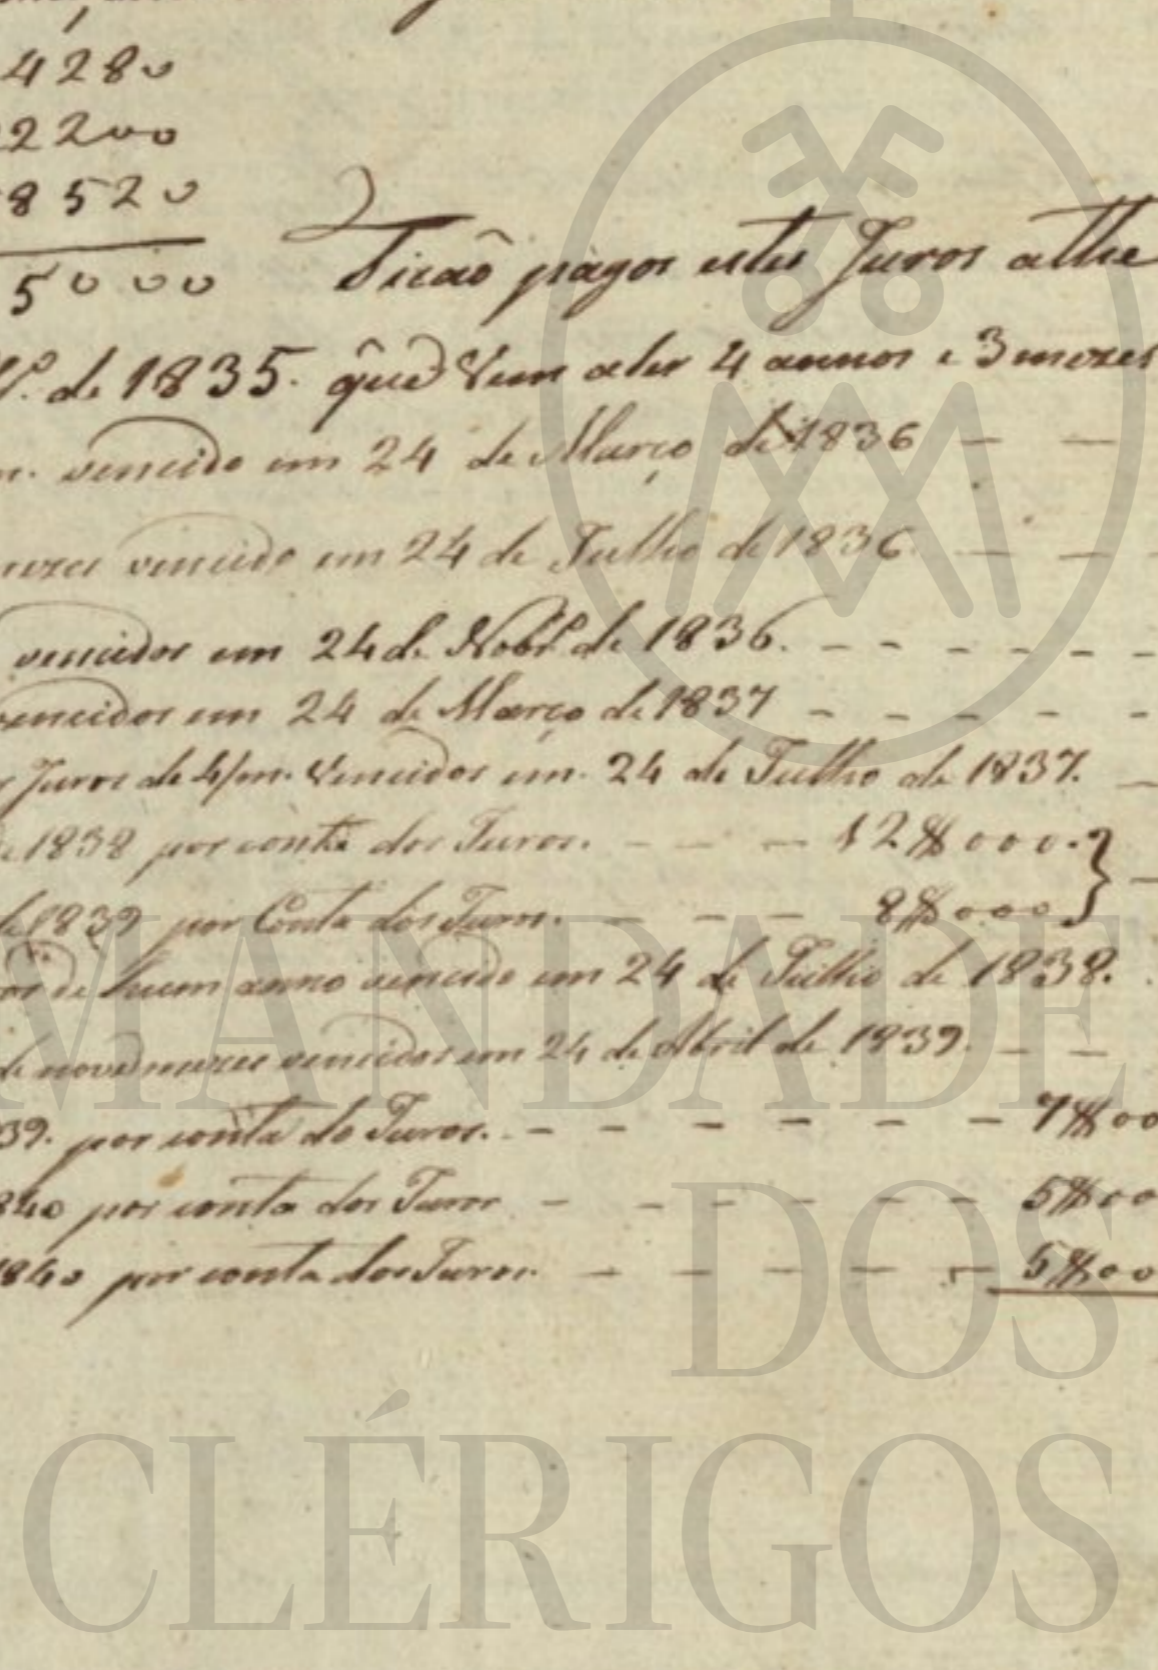 4280
2200
8520
5000 Ficaõ pagos estes Juros athe
de 1835. que Vem a ser 4 annos e 3 mezes
vencido em 24 de Março de 1836 — —
mezes vencido em 24 de Julho de 1836 — —
vencidos em 24 de Nobr.º de 1836. - - - - - -
vencidos em 24 de Março de 1837 - - - - -
Juros de 4/m. Vencidos em 24 de Julho de 1837. —
1838 por conta dos Juros. - - - 12$000. }
de 1839 por Conta dos Juros. - - - 8$000 } —
de hum anno vencido em 24 de Julho de 1838.
de nove mezes vencidos em 24 de Abril de 1839. - -
39. por conta de Juros. - - - - - - - 7$00
840 por conta dos Juros - - - - - 5$00
1840 por conta dos Juros. - - - - - 5$00
MANDADE
DOS
CLÉRIGOS